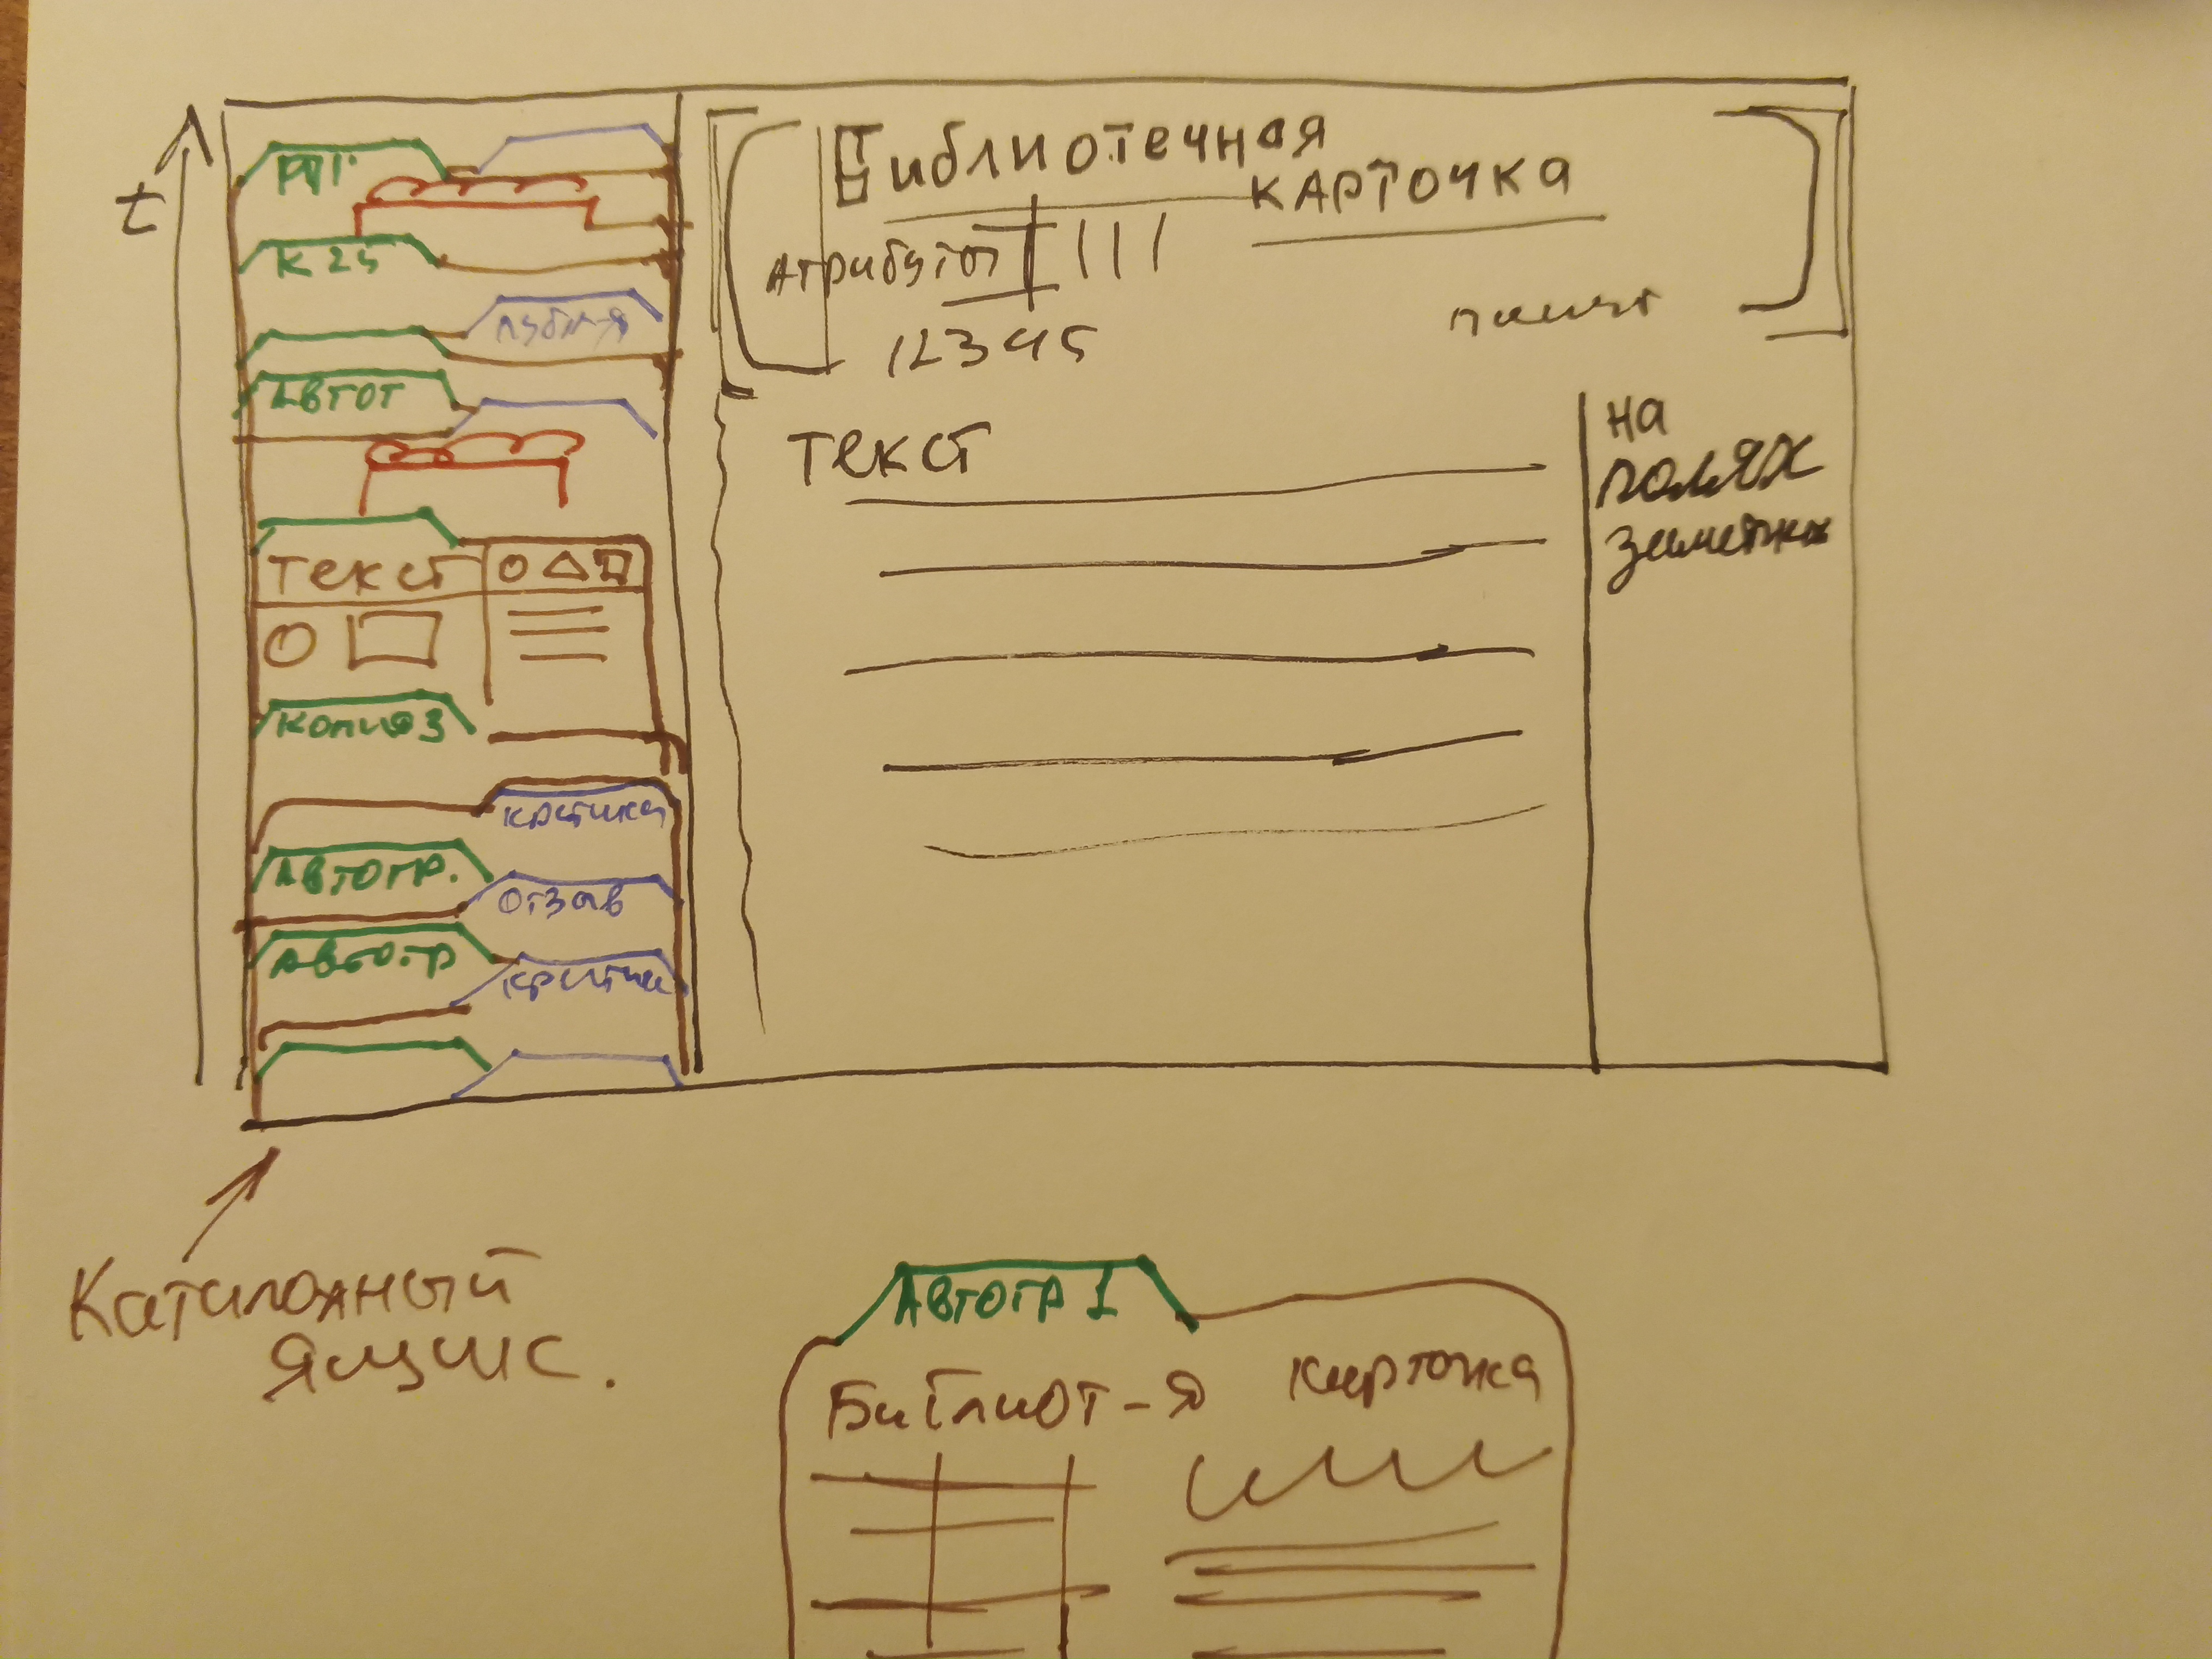 t
К 25
АВТОТ
ТЕКСТ
Копия 3
критика
АВТОГР.
ОТЗЫВ
АВТО.ГР
Библиотечная
КАРТОЧКА
Атрибуты
12345
ТЕКСТ
на
полях
заметки
Каталожный
ящик.
АВТОГР 1
Библиот-я карточка